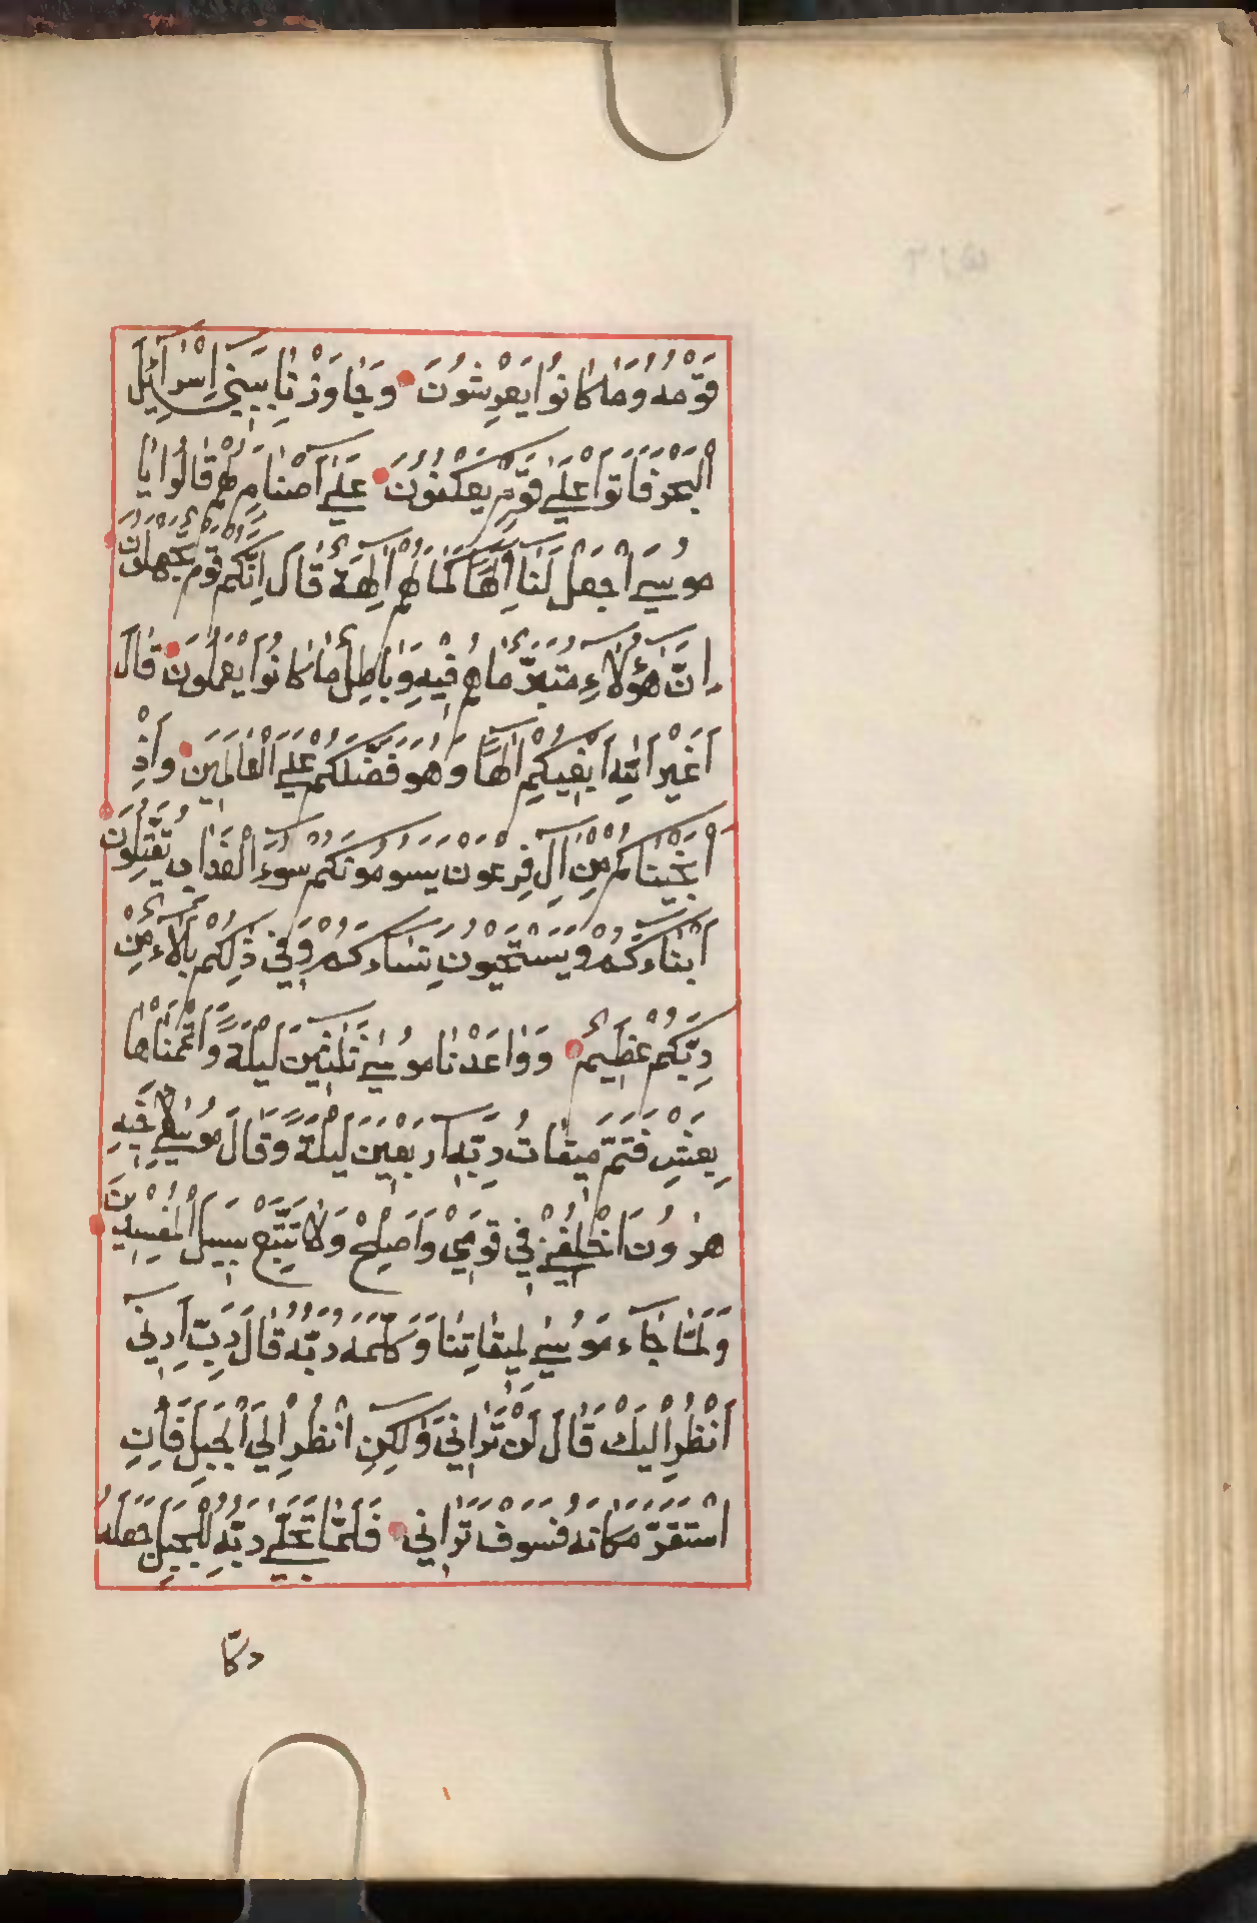 قَوْمُهُ وَمَا كَانُوا يَعْرِشُونَ وَجَاوَزْنَا بِبَنِي إِسْرَائِيلَ
الْبَحْرَ فَاَتَوْا عَلَى قَوْمٍ يَعْكُفُونَ عَلَى اَصْنَامٍ لَهُمْ قَالُوا يَا
مُوسَى اجْعَلْ لَنَا اِلَهًا كَمَا لَهُمْ اٰلِهَةٌ قَالَ اِنَّكُمْ قَوْمٌ تَجْهَلُونَ
اِنَّ هَؤُلَاءِ مُتَبَّرٌ مَا هُمْ فِيهِ وَبَاطِلٌ مَا كَانُوا يَعْمَلُونَ قَالَ
اَغَيْرَ اللَّهِ اَبْغِيكُمْ اِلَهًا وَهُوَ فَضَّلَكُمْ عَلَى الْعَالَمِينَ وَاِذْ
اَنْجَيْنَاكُمْ مِنْ اٰلِ فِرْعَوْنَ يَسُومُونَكُمْ سُوءَ الْعَذَابِ يُقَتِّلُونَ
اَبْنَاءَكُمْ وَيَسْتَحْيُونَ نِسَاءَكُمْ وَفِي ذَلِكُمْ بَلَاءٌ مِنْ
رَبِّكُمْ عَظِيمٌ وَوَاعَدْنَا مُوسَى ثَلَثِينَ لَيْلَةً وَاَتْمَمْنَاهَا
بِعَشْرٍ فَتَمَّ مِيقَاتُ رَبِّهِ اَرْبَعِينَ لَيْلَةً وَقَالَ مُوسَى لِاَخِيهِ
هَرُونَ اخْلُفْنِي فِي قَوْمِي وَاَصْلِحْ وَلَا تَتَّبِعْ سَبِيلَ الْمُفْسِدِينَ
وَلَمَّا جَاءَ مُوسَى لِمِيقَاتِنَا وَكَلَّمَهُ رَبُّهُ قَالَ رَبِّ اَرِنِي
اَنْظُرْ اِلَيْكَ قَالَ لَنْ تَرَانِي وَلَكِنِ انْظُرْ اِلَى الْجَبَلِ فَاِنِ
اسْتَقَرَّ مَكَانَهُ فَسَوْفَ تَرَانِي فَلَمَّا تَجَلَّى رَبُّهُ لِلْجَبَلِ جَعَلَهُ
دكّا